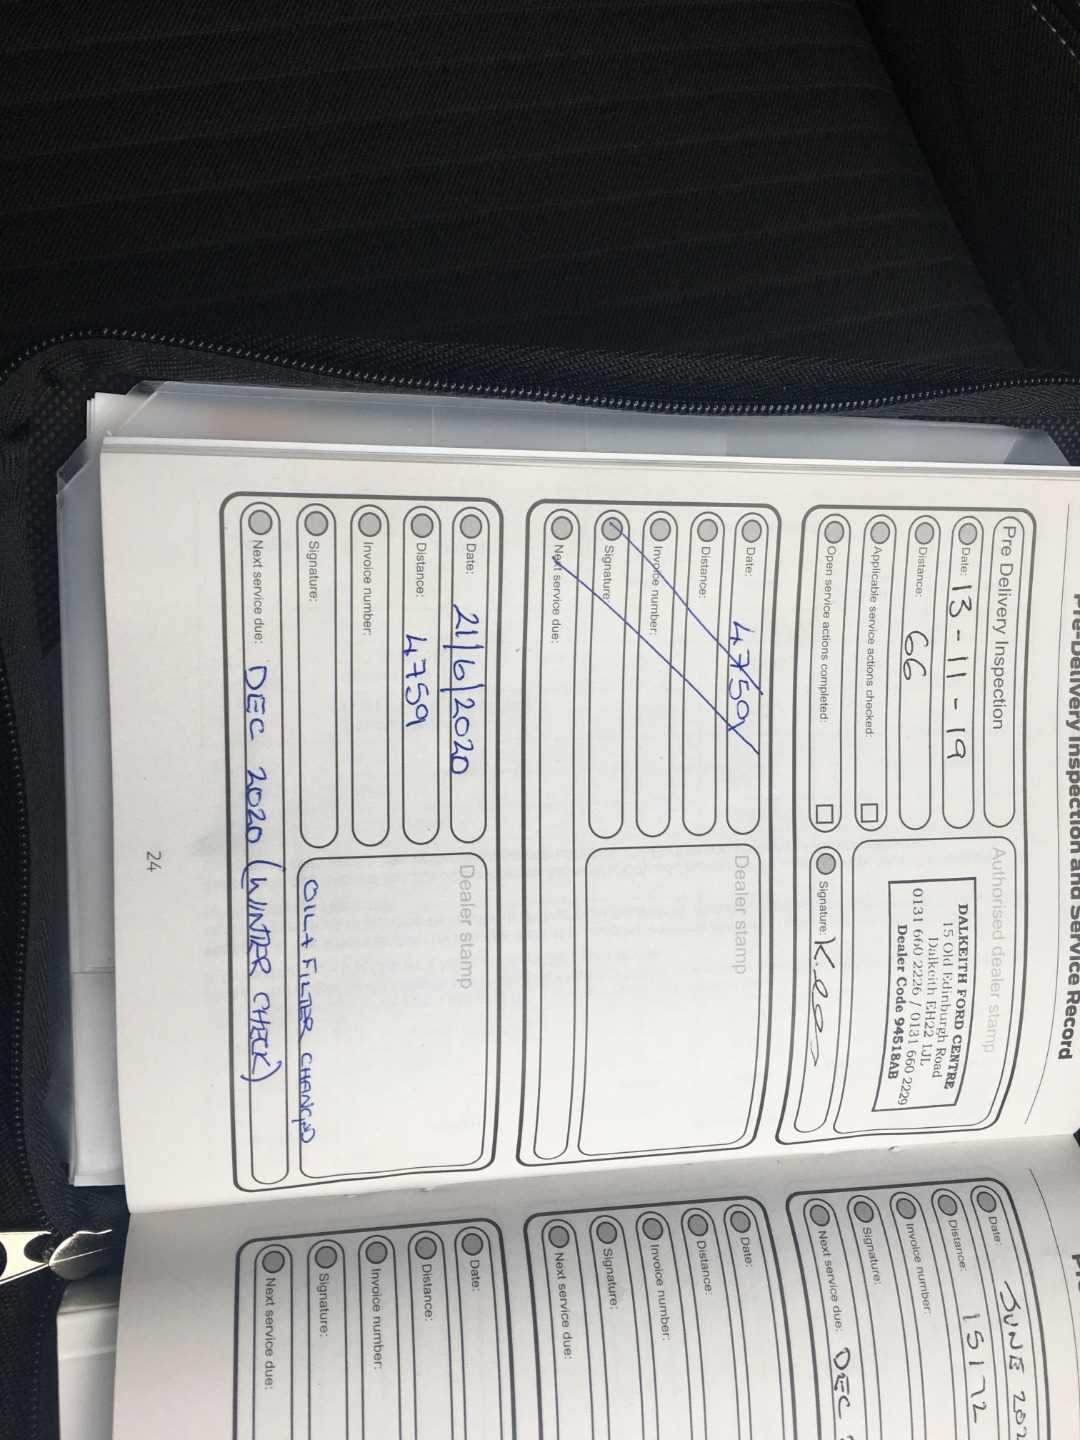 Pre-Delivery Inspection and Service Record
Pre Delivery Inspection
Date: 13-11-19
Distance: 66
Applicable service actions checked:
Open service actions completed:
Authorised dealer stamp
DALKEITH FORD CENTRE
15 Old Edinburgh Road
Dalkeith EH22 1JL
0131 660 2226 / 0131 660 2229
Dealer Code 94518AB
Signature:
Date: 4750
Distance:
Invoice number:
Signature:
Next service due:
Dealer stamp
Date: 21/6/2020
Distance: 4759
Invoice number:
Signature:
Next service due: DEC 2020 (WINTER CHECK)
Dealer stamp
OIL + FILTER CHANGED
24
Date: JUNE 202
Distance: 15172
Invoice number:
Signature:
Next service due: DEC
Date:
Distance:
Invoice number:
Signature:
Next service due:
Date:
Distance:
Invoice number:
Signature:
Next service due: